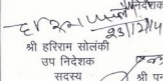 निदेशक
23/12/14
श्री हरिराम सोलंकी
उप निदेशक
सदस्य
श्री